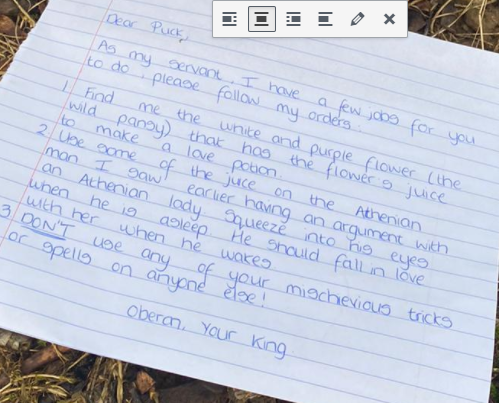 Dear Puck,
As my servant, I have a few jobs for you
to do, please follow my orders.
1. Find me the white and purple flower (the
wild pansy) that has the flower's juice
to make a love potion.
2. Use some of the juice on the Athenian
man I saw earlier having an argument with
an Athenian lady squeeze into his eyes
when he is asleep. He should fall in love
with her when he wakes
3. DON'T use any of your mischievious tricks
or spells on anyone else!
Oberon, Your King